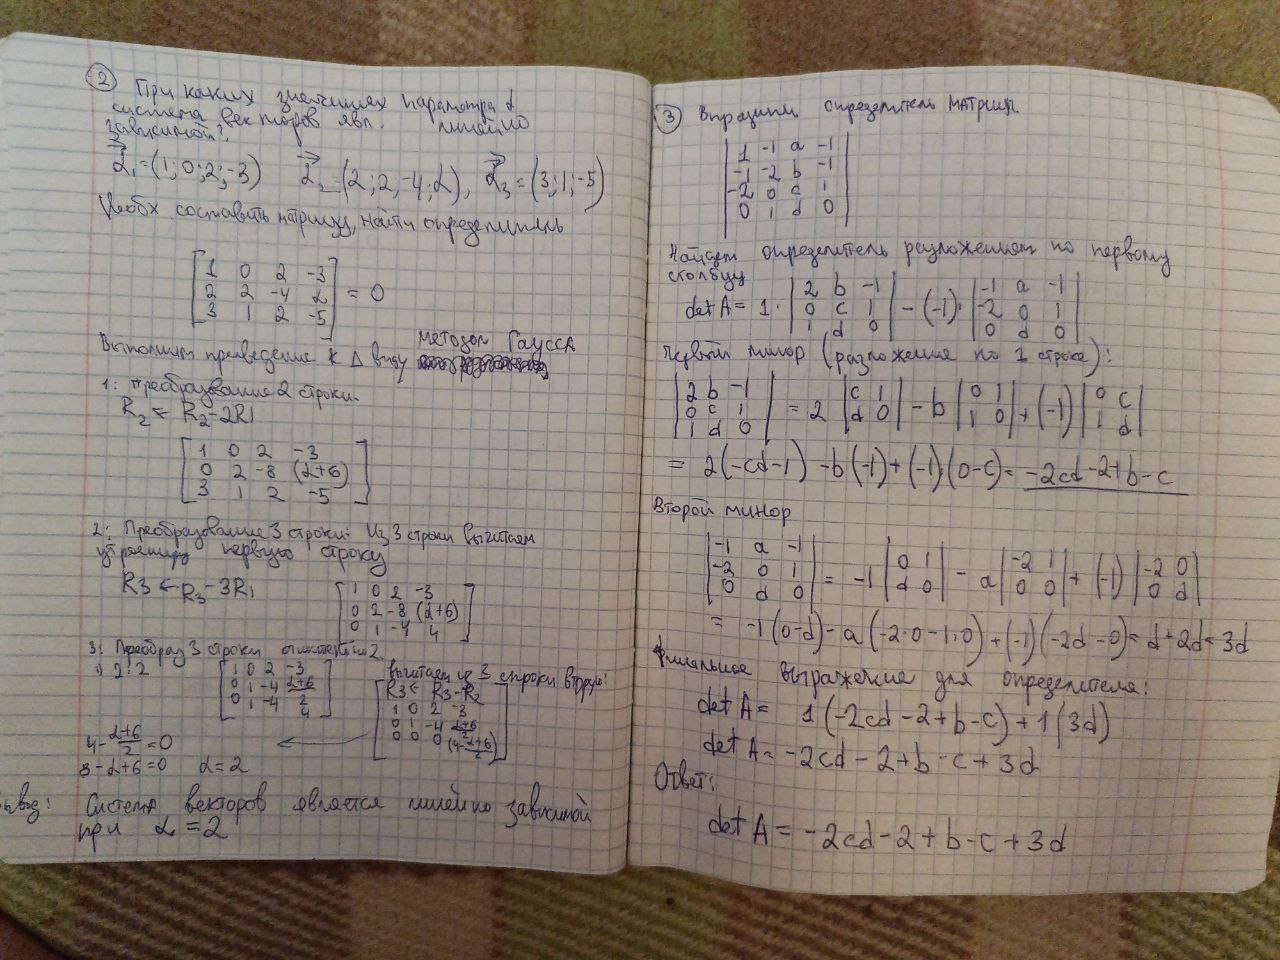 ② При каких значениях параметра α
система векторов явл. линейно
зависимой?
α₁=(1;0;2;-3) α₂=(2;2;-4;α), α₃=(3;1;-5)
Необх составить матрицу, найти определитель
1 0 2 -3
2 2 -4 α = 0
3 1 2 -5
Выполним приведение к Δ виду методом Гаусса
1: Преобразование 2 строки.
R₂ ← R₂-2R₁
1 0 2 -3
0 2 -8 (α+6)
3 1 2 -5
2: Преобразование 3 строки: Из 3 строки вычитаем
первую строку
R3 ← R₃-3R₁
1 0 2 -3
0 2 -8 (α+6)
0 1 -4 4
3: Преобраз 3 строки
1) 2:2
1 0 2 -3
0 1 -4 α+6/2
0 1 -4 4
вычитаем из 3 строки вторую:
R3 ← R3-R2
1 0 2 -3
0 1 -4 α+6/2
0 0 0 (4-α+6/2)
4-α+6/2=0
8-α+6=0 α=2
Система векторов является линейно зависимой
при α=2
③ определитель матриц.
1 -1 a -1
-1 -2 b -1
-2 0 c 1
0 1 d 0
Найдем определитель разложением по первому
столбцу
det A = 1· |2 b -1; 0 c 1; 1 d 0| - (-1)· |-1 a -1; -2 0 1; 0 d 0|
Первый минор (разложение по 1 строке):
|2 b -1; 0 c 1; 1 d 0| = 2 |c 1; d 0| - b |0 1; 1 0| + (-1) |0 c; 1 d|
= 2(-cd-1) -b(-1)+(-1)·(0-c)= -2cd-2+b-c
Второй минор
|-1 a -1; -2 0 1; 0 d 0| = -1 |0 1; d 0| - a |-2 1; 0 0| + (-1) |-2 0; 0 d|
= -1(0-d)-a(-2·0-1·0)+(-1)(-2d-0)= d+2d=3d
Финальное выражение для определителя:
det A = 1(-2cd-2+b-c)+1(3d)
det A = -2cd-2+b-c+3d
Ответ:
det A = -2cd-2+b-c+3d